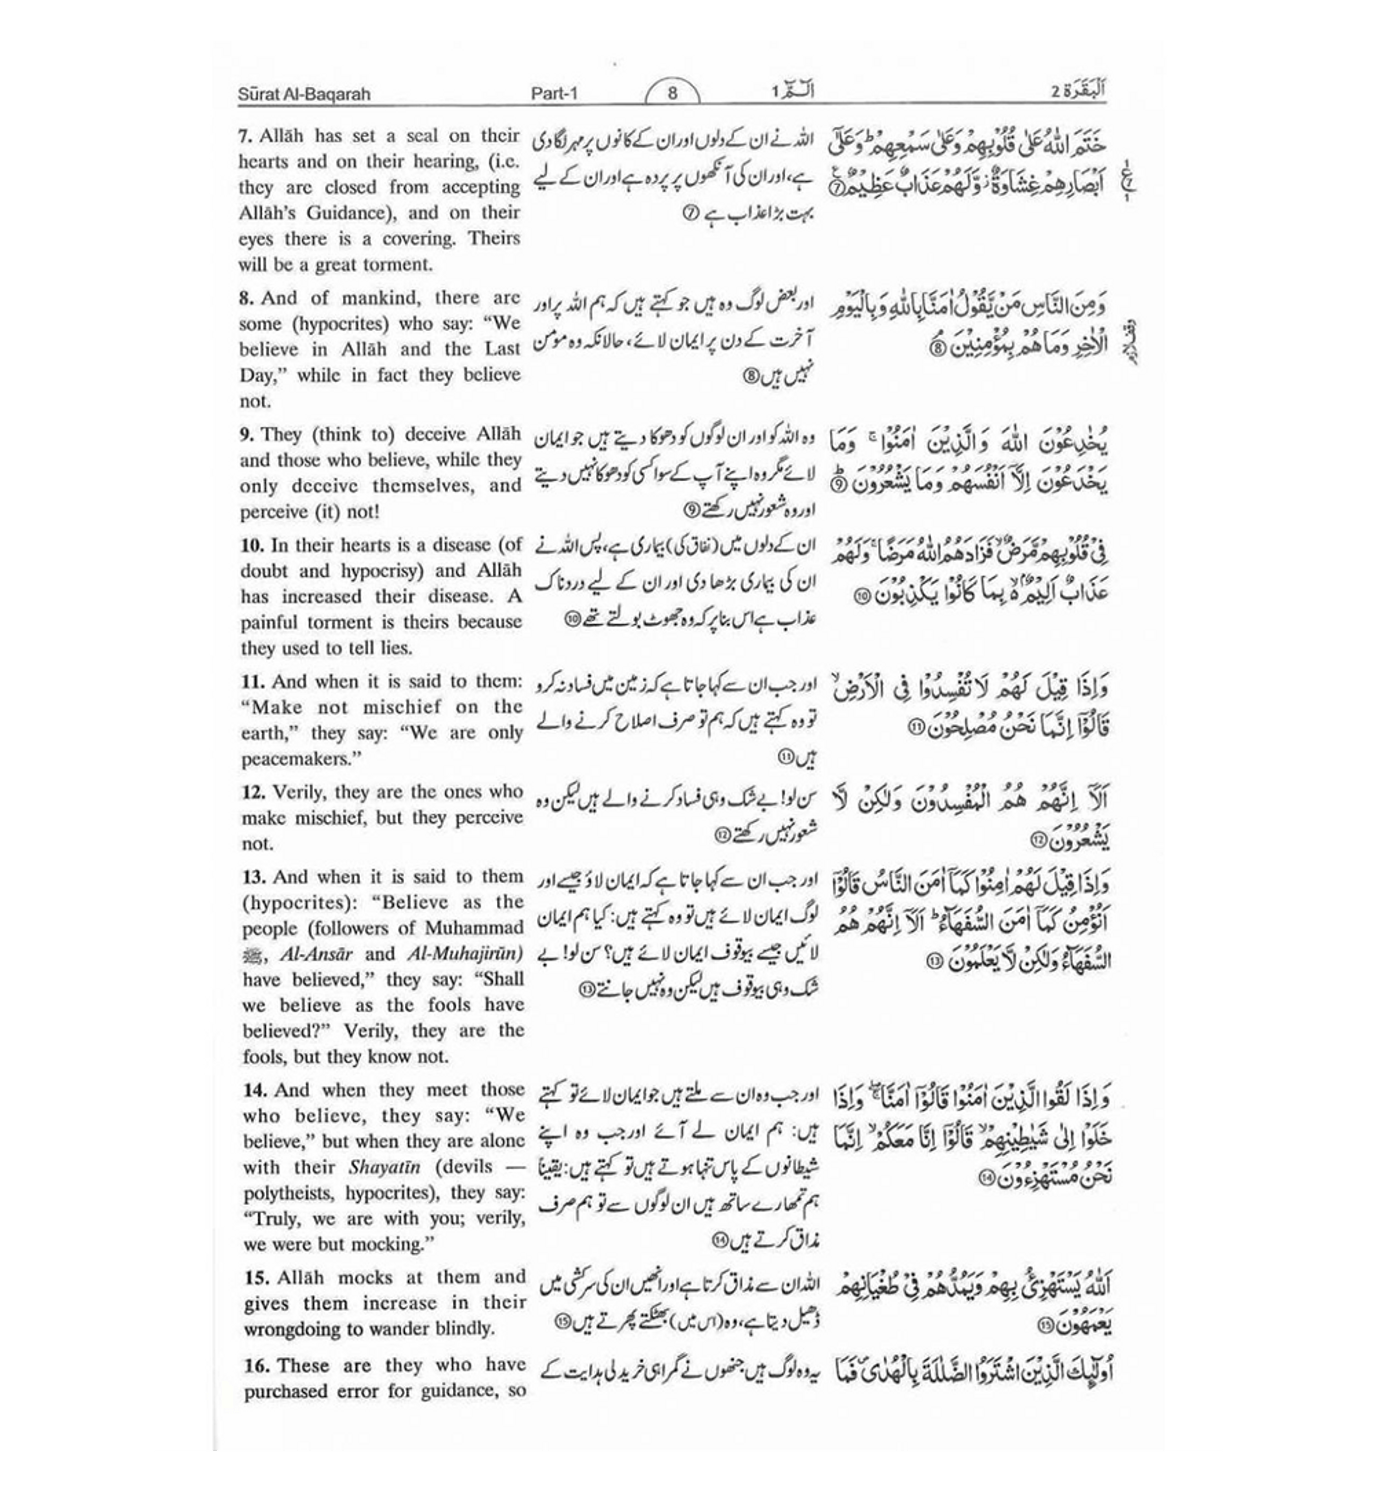 Sūrat Al-Baqarah Part-1 8 الٓمّٓ 1 اَلْبَقَرَة 2
7. Allāh has set a seal on their
hearts and on their hearing, (i.e.
they are closed from accepting
Allāh's Guidance), and on their
eyes there is a covering. Theirs
will be a great torment.
اللہ نے ان کے دلوں اور ان کے کانوں پر مہر لگا دی
ہے، اور ان کی آنکھوں پر پردہ ہے اور ان کے لیے
بہت بڑا عذاب ہے ⑦
خَتَمَ اللّٰهُ عَلٰى قُلُوْبِهِمْ وَعَلٰى سَمْعِهِمْ ؕ وَعَلٰٓى
اَبْصَارِهِمْ غِشَاوَةٌ ؗ وَّلَهُمْ عَذَابٌ عَظِيْمٌ ⑦
8. And of mankind, there are
some (hypocrites) who say: “We
believe in Allāh and the Last
Day,” while in fact they believe
not.
اور بعض لوگ وہ ہیں جو کہتے ہیں کہ ہم اللہ پر اور
آخرت کے دن پر ایمان لائے، حالانکہ وہ مؤمن
نہیں ہیں ⑧
وَمِنَ النَّاسِ مَنْ يَّقُوْلُ اٰمَنَّا بِاللّٰهِ وَبِالْيَوْمِ
الْاٰخِرِ وَمَا هُمْ بِمُؤْمِنِيْنَ ⑧
وقف لازم
9. They (think to) deceive Allāh
and those who believe, while they
only deceive themselves, and
perceive (it) not!
وہ اللہ کو اور ان لوگوں کو دھوکا دیتے ہیں جو ایمان
لائے مگر وہ اپنے آپ کے سوا کسی کو دھوکا نہیں دیتے
اور وہ شعور نہیں رکھتے ⑨
يُخٰدِعُوْنَ اللّٰهَ وَالَّذِيْنَ اٰمَنُوْا ۚ وَمَا
يَخْدَعُوْنَ اِلَّآ اَنْفُسَهُمْ وَمَا يَشْعُرُوْنَ ⑨
10. In their hearts is a disease (of
doubt and hypocrisy) and Allāh
has increased their disease. A
painful torment is theirs because
they used to tell lies.
ان کے دلوں میں (نفاق کی) بیماری ہے، پس اللہ نے
ان کی بیماری بڑھا دی اور ان کے لیے دردناک
عذاب ہے اس بنا پر کہ وہ جھوٹ بولتے تھے ⑩
فِيْ قُلُوْبِهِمْ مَّرَضٌ ۙ فَزَادَهُمُ اللّٰهُ مَرَضًا ۚ وَلَهُمْ
عَذَابٌ اَلِيْمٌ ۢ ۙ بِمَا كَانُوْا يَكْذِبُوْنَ ⑩
11. And when it is said to them:
“Make not mischief on the
earth,” they say: “We are only
peacemakers.”
اور جب ان سے کہا جاتا ہے کہ زمین میں فساد نہ کرو
تو وہ کہتے ہیں کہ ہم تو صرف اصلاح کرنے والے
ہیں ⑪
وَاِذَا قِيْلَ لَهُمْ لَا تُفْسِدُوْا فِي الْاَرْضِ ۙ
قَالُوْٓا اِنَّمَا نَحْنُ مُصْلِحُوْنَ ⑪
12. Verily, they are the ones who
make mischief, but they perceive
not.
سن لو! بے شک وہی فساد کرنے والے ہیں لیکن وہ
شعور نہیں رکھتے ⑫
اَلَآ اِنَّهُمْ هُمُ الْمُفْسِدُوْنَ وَلٰكِنْ لَّا
يَشْعُرُوْنَ ⑫
13. And when it is said to them
(hypocrites): “Believe as the
people (followers of Muhammad
ﷺ, Al-Ansār and Al-Muhajirūn)
have believed,” they say: “Shall
we believe as the fools have
believed?” Verily, they are the
fools, but they know not.
اور جب ان سے کہا جاتا ہے کہ ایمان لاؤ جیسے اور
لوگ ایمان لائے ہیں تو وہ کہتے ہیں: کیا ہم ایمان
لائیں جیسے بیوقوف ایمان لائے ہیں؟ سن لو! بے
شک وہی بیوقوف ہیں لیکن وہ نہیں جانتے ⑬
وَاِذَا قِيْلَ لَهُمْ اٰمِنُوْا كَمَآ اٰمَنَ النَّاسُ قَالُوْٓا
اَنُؤْمِنُ كَمَآ اٰمَنَ السُّفَهَآءُ ؕ اَلَآ اِنَّهُمْ هُمُ
السُّفَهَآءُ وَلٰكِنْ لَّا يَعْلَمُوْنَ ⑬
14. And when they meet those
who believe, they say: “We
believe,” but when they are alone
with their Shayatīn (devils —
polytheists, hypocrites), they say:
“Truly, we are with you; verily,
we were but mocking.”
اور جب وہ ان سے ملتے ہیں جو ایمان لائے تو کہتے
ہیں: ہم ایمان لے آئے اور جب وہ اپنے
شیطانوں کے پاس تنہا ہوتے ہیں تو کہتے ہیں: یقیناً
ہم تمھارے ساتھ ہیں ان لوگوں سے تو ہم صرف
مذاق کرتے ہیں ⑭
وَاِذَا لَقُوا الَّذِيْنَ اٰمَنُوْا قَالُوْٓا اٰمَنَّا ۖۚ وَاِذَا
خَلَوْا اِلٰى شَيٰطِيْنِهِمْ ۙ قَالُوْٓا اِنَّا مَعَكُمْ ۙ اِنَّمَا
نَحْنُ مُسْتَهْزِءُوْنَ ⑭
15. Allāh mocks at them and
gives them increase in their
wrongdoing to wander blindly.
اللہ ان سے مذاق کرتا ہے اور انھیں ان کی سرکشی میں
ڈھیل دیتا ہے، وہ (اس میں) بھٹکتے پھرتے ہیں ⑮
اَللّٰهُ يَسْتَهْزِئُ بِهِمْ وَيَمُدُّهُمْ فِيْ طُغْيَانِهِمْ
يَعْمَهُوْنَ ⑮
16. These are they who have
purchased error for guidance, so
یہ وہ لوگ ہیں جنھوں نے گمراہی خرید لی ہدایت کے
اُولٰٓئِكَ الَّذِيْنَ اشْتَرَوُا الضَّلٰلَةَ بِالْهُدٰى ۪ فَمَا